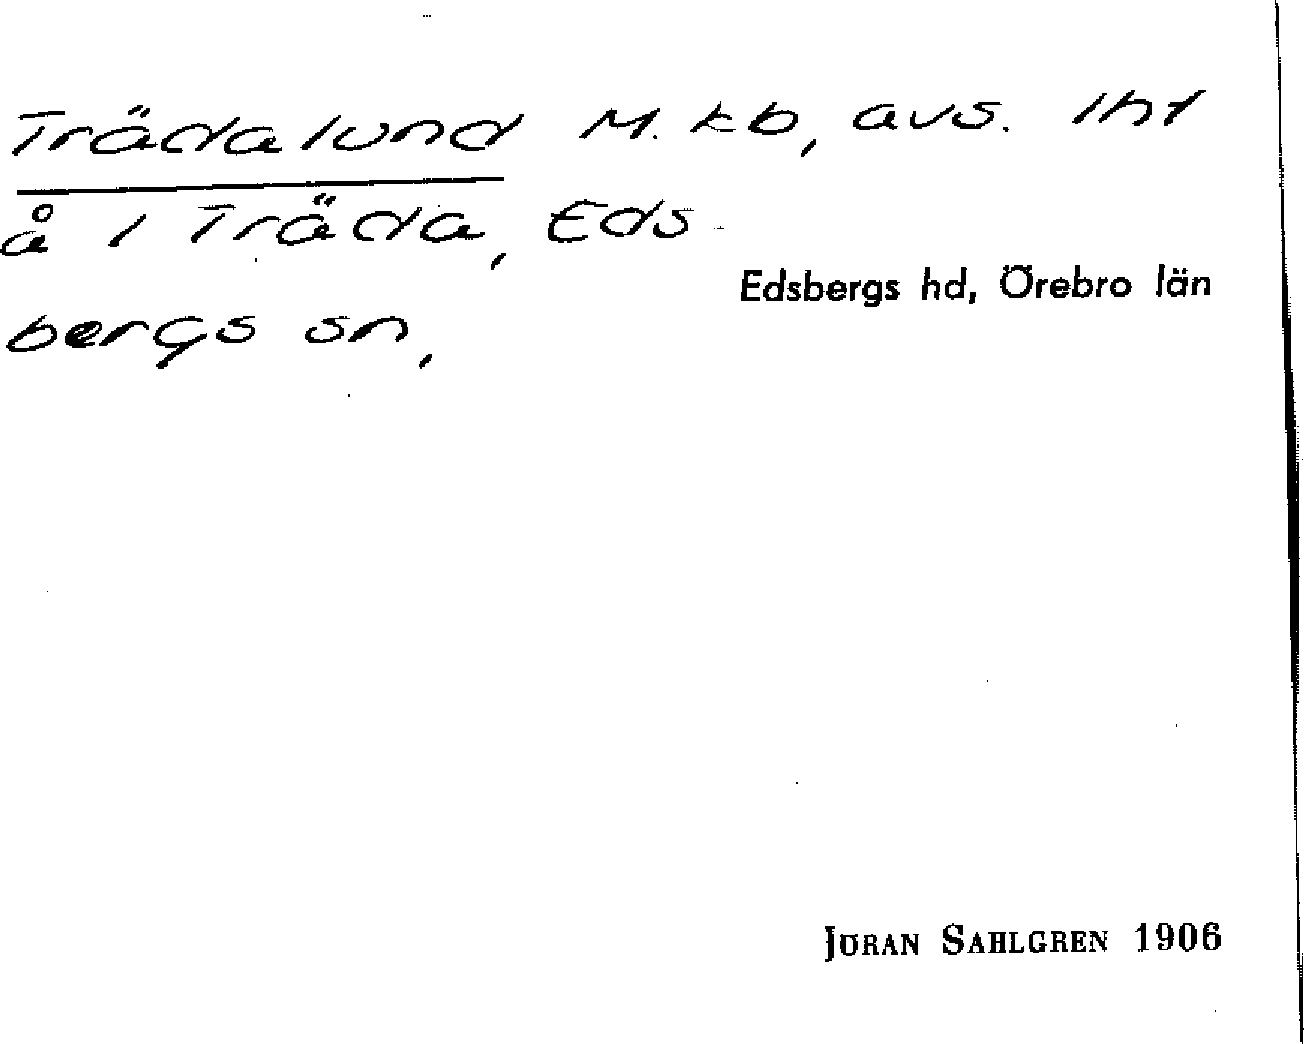 Trädalund M. kb, avs. lht
å 1 Träda, Eds-
Edsbergs hd, Örebro län
bergs sn,
JÖRAN SAHLGREN 1906